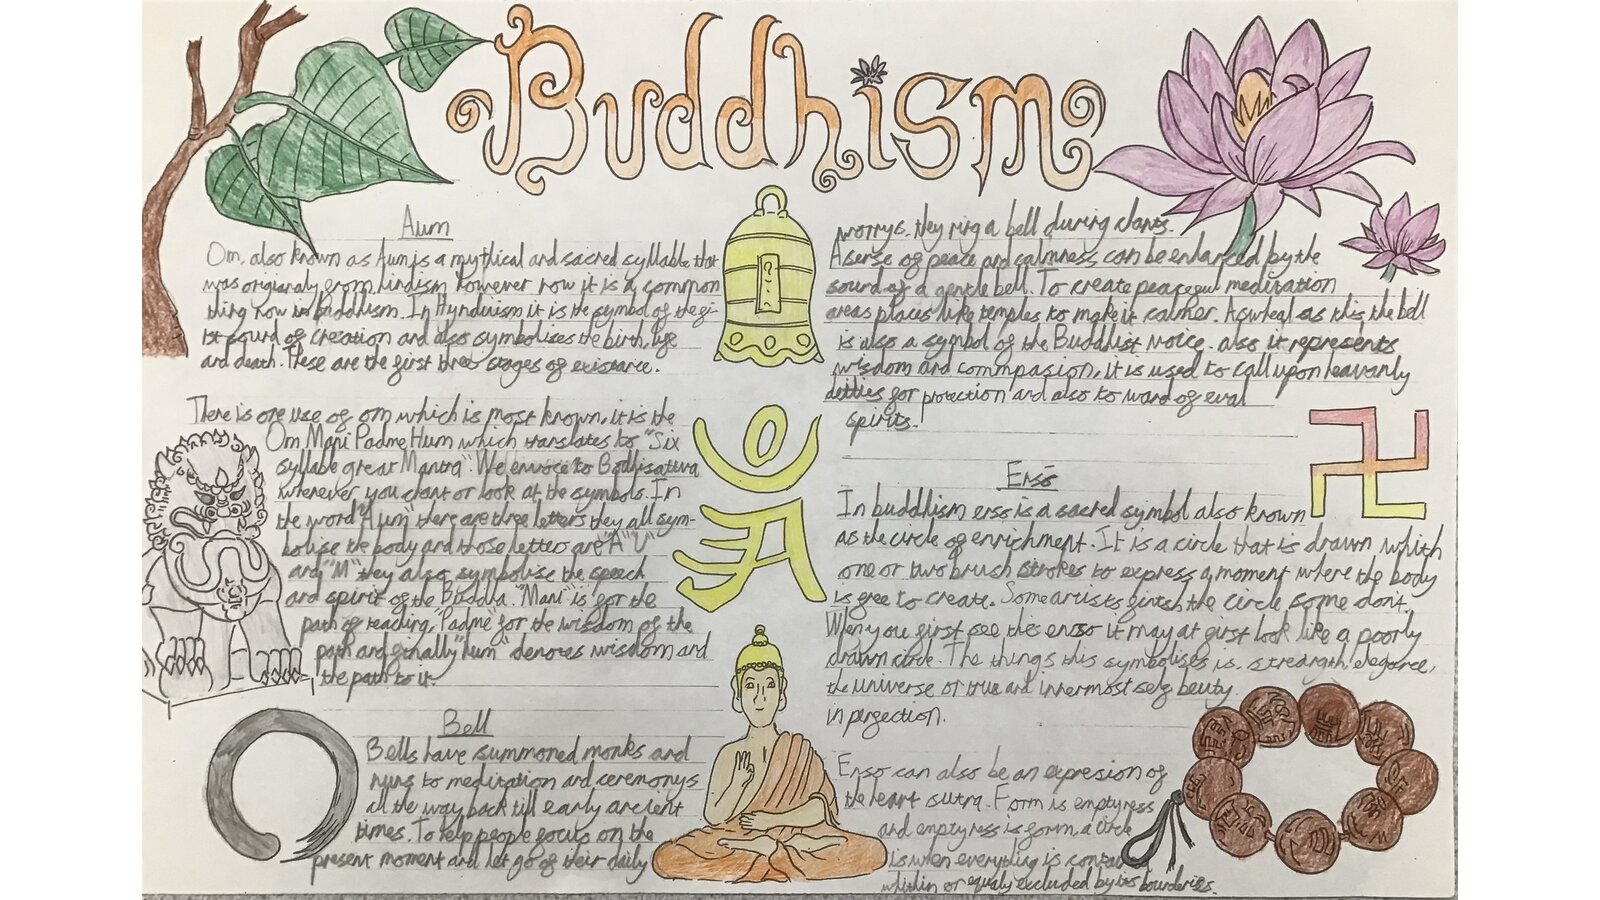 Buddhism
Aum
Om, also known as Aum is a mythical and sacred syllable that
was origianaly from hindism however now it is a common
thing now in Buddhism. In Hynduism it is the symbol of the fi-
rst sound of creation and also symbolises the birth, life
and death. These are the first three stages of existance.
There is one use of om which is most known, it is the
Om Mani Padme Hum which translates to "Six
syllable great Mantra". We envoce to Bodhisattva
whenever you chant or look at the symbols. In
the word "Aum" there are three letters they all sym-
bolise the body and those letter are "A" "U"
and "M" they also symbolise the speech
and spirit of the Buddha. "Mani" is for the
path of teaching, "Padme" for the wisdom of the
path and finally "hum" denotes wisdom and
the path to it.
Bell
Bells have summoned monks and
nuns to meditation and ceremonys
all the way back till early ancient
times. To help people focus on the
present moment and let go of their daily
worrys. they ring a bell during chants.
A sense of peace and calmness can be enhanced by the
sound of a gentle bell. To create peaceful meditation
areas places like temples to make it calmer. Aswheal as this the bell
is also a symbol of the Buddhist voice. also it represents
wisdom and commpasion, it is used to call upon heavanly
deities for protection and also to ward of eval
spirits.
Ensō
In buddhism enso is a sacred symbol also known
as the circle of enrichment. It is a circle that is drawn which
one or two brush strokes to express a moment where the body
is free to create. Some artists finish the circle some don't.
When you first see the enso it may at first look like a poorly
drawn circle. The things this symbolises is, strength, elegance,
the universe or true and innermost self beuty
in perfection.
Enso can also be an expresion of
the heart sutra. Form is emptyness
and emptyness is form, a circle
is when everything is
whithin or equaly excluded by its bounderies.